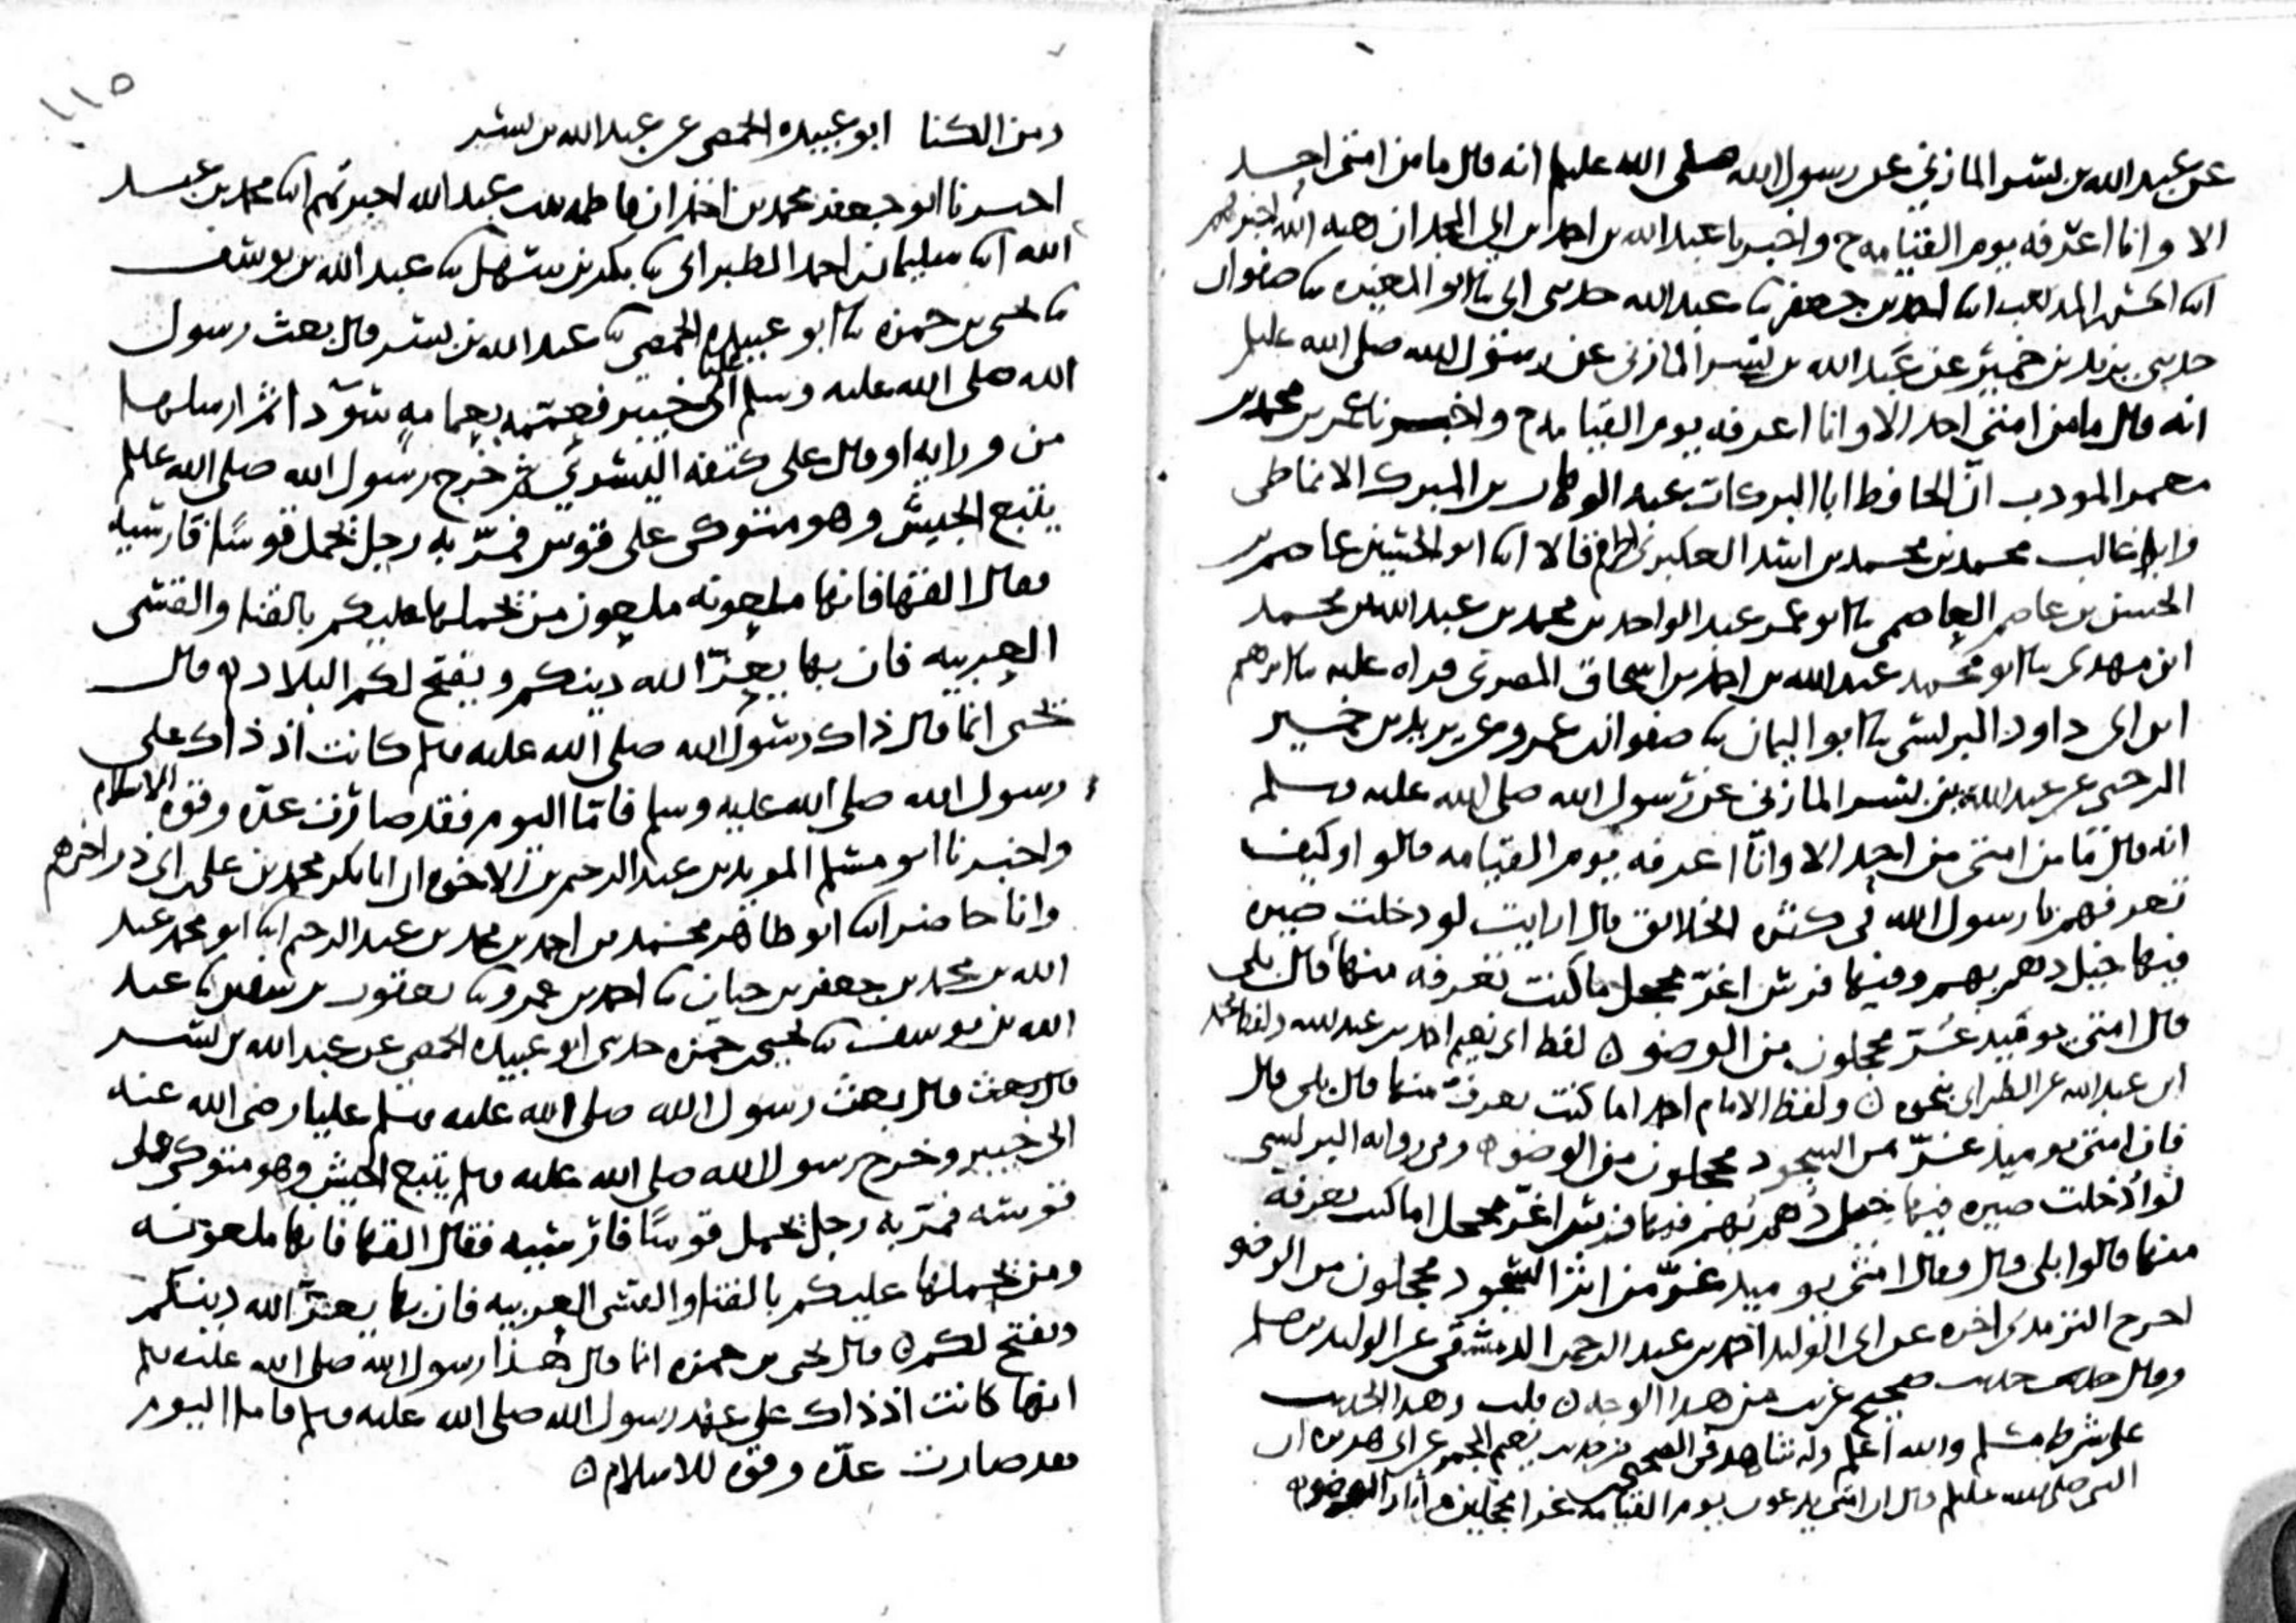 عن عبد الله بن بسر المازني عن رسول الله صلى الله عليه وسلم انه قال ما من امتي احد
الا وانا اعرفه يوم القيامة ح واخبرنا عبد الله بن احمد بن ابي المجد ان هبة الله اخبرهم
ابنا الحسن بن المذهب ابنا احمد بن جعفر ثنا عبد الله حدثني ابي ثنا ابو المغيرة ثنا صفوان
حدثني يزيد بن خمير عن عبد الله بن بسر المازني عن رسول الله صلى الله عليه وسلم
انه قال ما من امتي احد الا وانا اعرفه يوم القيامة ح واخبرنا عمر بن محمد بن
معمر المودب ان الحافظ ابا البركات عبد الوهاب بن المبرك الانماطي
وابا غالب محمد بن محمد بن اسد العكبري اخبراهم قالا ابنا ابو الحسين عاصم بن
الحسن بن عاصم العاصمي ثنا ابو عمر عبد الواحد بن محمد بن عبد الله بن محمد
ابن مهدي ثنا ابو محمد عبد الله بن احمد بن اسحاق المصري قراه عليه ثنا ابرهيم
ابن ابي داود البرلسي ثنا ابو اليمان ثنا صفوان بن عمرو عن يزيد بن خمير
الرحبي عن عبد الله بن بسر المازني عن رسول الله صلى الله عليه وسلم
انه قال ما من امتي من احد الا وانا اعرفه يوم القيامه قالوا وكيف
تعرفهم يا رسول الله في كثره الخلائق قال ارايت لو دخلت صبره
فيها خيل دهم بهم وفيها فرس اغر محجل اما كنت تعرفه منها قال بلى
قال امتي يوميد غر محجلون من الوضوء لفظ ابي نعيم احمد بن عبد الله ولفظ محمد
ابن عبد الله عن الطبراني بنحوه ولفظ الامام احمد اما كنت تعرف منها قال بلى قال
فان امتي يوميذ غر من السجود محجلون من الوضوء وفي رواية البرلسي
لو ادخلت صبره فيها خيل دهم بهم فيها فرس اغر محجل اما كنت تعرفه
منها قالوا بلى قال وقال امتي يوميد غر من اثر السجود محجلون من الوضو
اخرج الترمذي اخره عن ابي الوليد احمد بن عبد الرحمن الدمشقي عن الوليد بن مسلم
وقال حديث حسن صحيح غريب من هذا الوجه قلت وهذا الحديث
على شرط مسلم والله اعلم وله شاهد في الصحيحين من حديث نعيم المجمر عن ابي هريرة ان
النبي صلى الله عليه وسلم قال ان امتي يدعون يوم القيامة غرا محجلين من اثار الوضوء
١١٥
ومن الكنا ابو عبيده الحمصي عن عبد الله بن بسر
اخبرنا ابو جعفر محمد بن احمد ان فاطمه بنت عبد الله اخبرتهم ابنا محمد بن عبد
الله ابنا سليمان بن احمد الطبراني ثنا بكر بن سهل ثنا عبد الله بن يوسف
ثنا يحيى بن حمزه ثنا ابو عبيده الحمصي ثنا عبد الله بن بسر قال بعث رسول
الله صلى الله عليه وسلم عليا الى خيبر فعممه بعمامه سودا ثم ارسلها
من ورايه او قال على كتفه اليسرى ثم خرج رسول الله صلى الله عليه وسلم
يتبع الجيش وهو متوكى على قوس فمر به رجل يحمل قوسا فارسيه
فقال القها فانها ملعونه ملعون من يحملها عليكم بالقنا والقسي
العربيه فان بها يعز الله دينكم ويفتح لكم البلاد قال
يحيى انما قال ذاك رسول الله صلى الله عليه وسلم كانت اذ ذاك على
رسول الله صلى الله عليه وسلم فاما اليوم فقد صارت عده وقوه الاسلام
واخبرنا ابو مسلم المويد بن عبد الرحيم بن الاخوه ان ابا بكر محمد بن علي بن ابي ذر اخبرهم
وانا حاضر ابنا ابو طاهر محمد بن احمد بن محمد بن عبد الرحيم ابنا ابو محمد عبد
الله بن محمد بن جعفر بن حيان ثنا احمد بن عمرو ثنا يعقوب بن سفين ثنا عبد
الله بن يوسف ثنا يحيى بن حمزه حدثني ابو عبيده الحمصي عن عبد الله بن بسر
قال بعث قال بعث رسول الله صلى الله عليه وسلم عليا رضي الله عنه
الى خيبر وخرج رسول الله صلى الله عليه وسلم يتبع الجيش وهو متوكى على
قوسه فمر به رجل يحمل قوسا فارسيه فقال القها فانها ملعونه
ومن يحملها عليكم بالقنا والقسي العربيه فان بها يعز الله دينكم
ويفتح لكم قال يحيى بن حمزه انما قال هذا رسول الله صلى الله عليه وسلم
انها كانت اذ ذاك على عهد رسول الله صلى الله عليه وسلم فاما اليوم
فقد صارت عده وقوه للاسلام